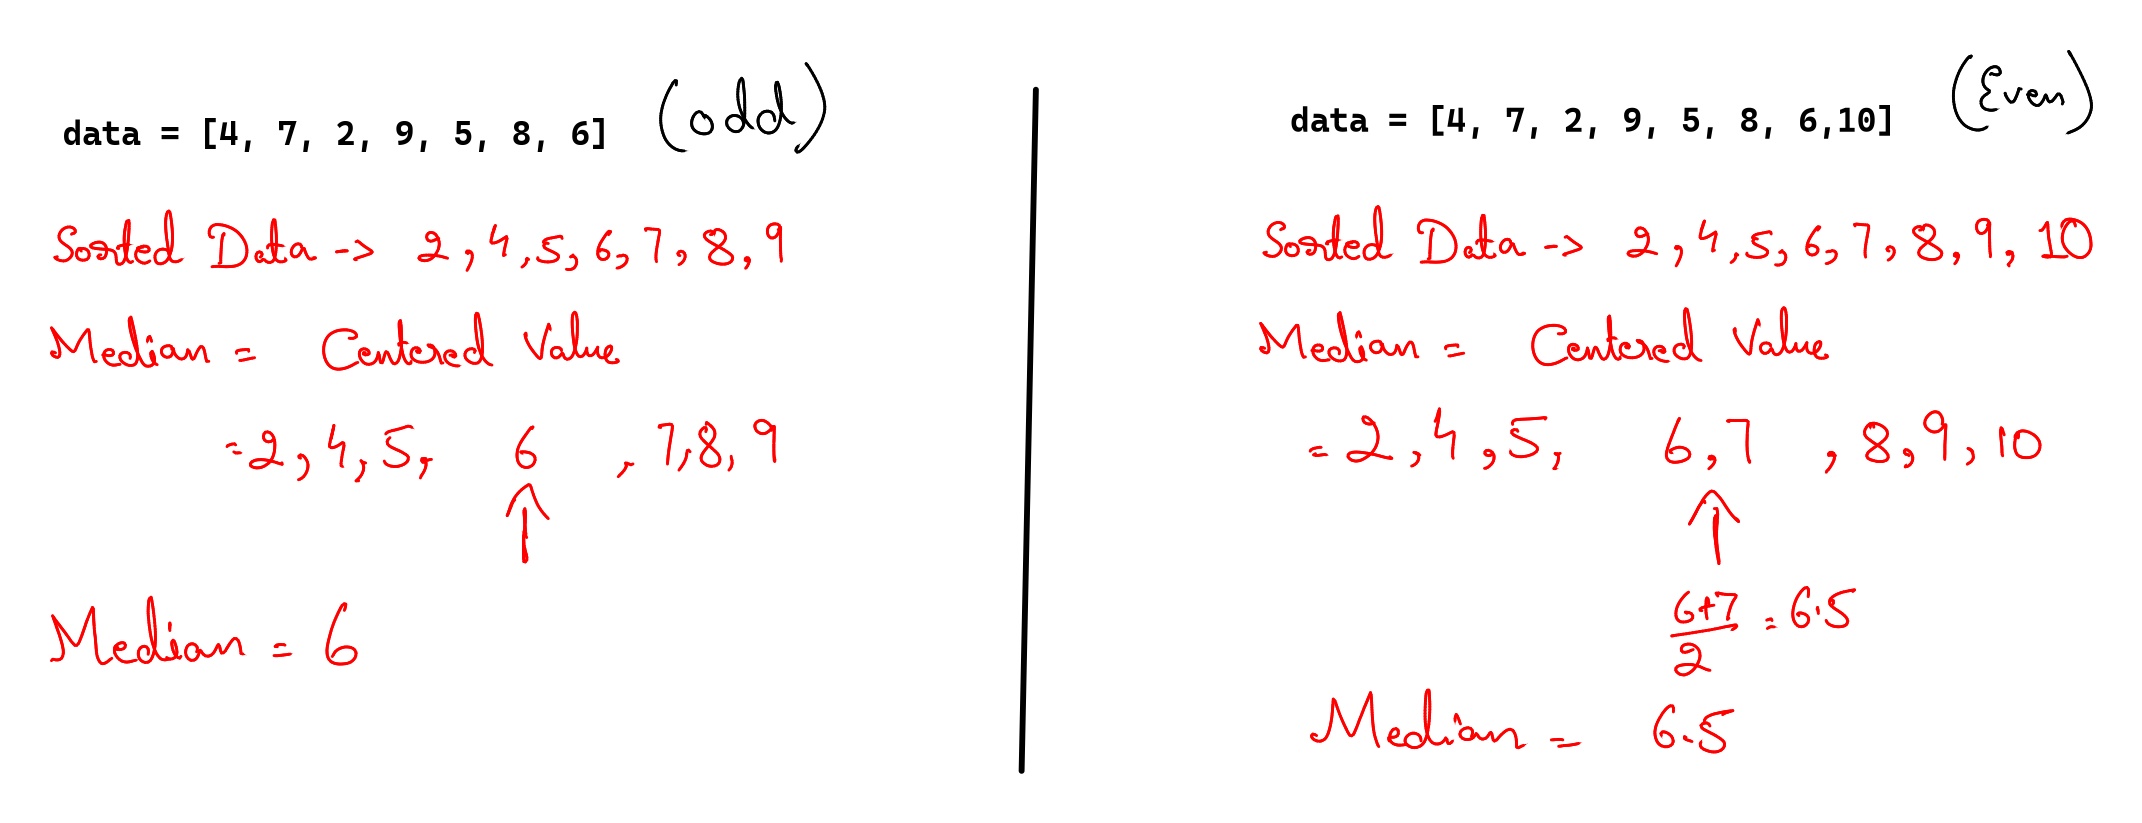 data = [4, 7, 2, 9, 5, 8, 6] (odd)
Sorted Data -> 2, 4, 5, 6, 7, 8, 9
Median = Centered Value
= 2, 4, 5, 6 , 7, 8, 9
Median = 6
data = [4, 7, 2, 9, 5, 8, 6,10] (Even)
Sorted Data -> 2, 4, 5, 6, 7, 8, 9, 10
Median = Centered Value
= 2, 4, 5, 6, 7 , 8, 9, 10
6+7
2
= 6.5
Median = 6.5